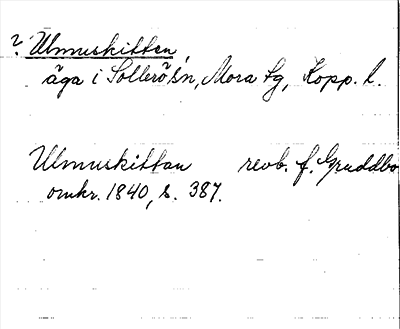 ? Ulmuskitten
äga i Sollerö sn, Mora tg, Kopp. l.
Ulmuskittan revb. f. Gruddbo
omkr. 1840, s. 387.